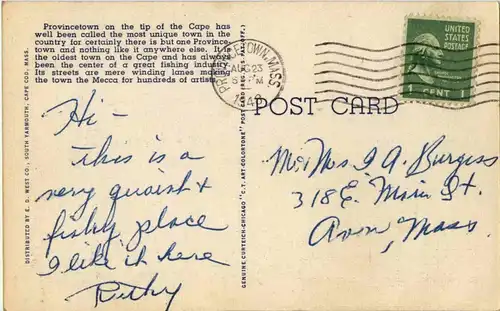 Provincetown on the tip of the Cape has
well been called the most unique town in the
country for certainly there is but one Province-
town and nothing like it anywhere else. It is
the oldest town on the Cape and has always
been the center of a great fishing industry.
Its streets are mere winding lanes making
the town the Mecca for hundreds of artists.
Hi -
This is a
very quaint &
fishy place
I like it here
Ruthy
DISTRIBUTED BY E. D. WEST CO., SOUTH YARMOUTH, CAPE COD, MASS.
GENUINE CURTEICH-CHICAGO "C.T. ART-COLORTONE" POST CARD (REG. U.S. PAT. OFF.)
PROVINCETOWN, MASS
AUG 23
PM
UNITED
STATES
POSTAGE
1 CENT 1
POST CARD
Mr. Mrs. A. Burgess
318 E. Main St.
Avon, Mass.